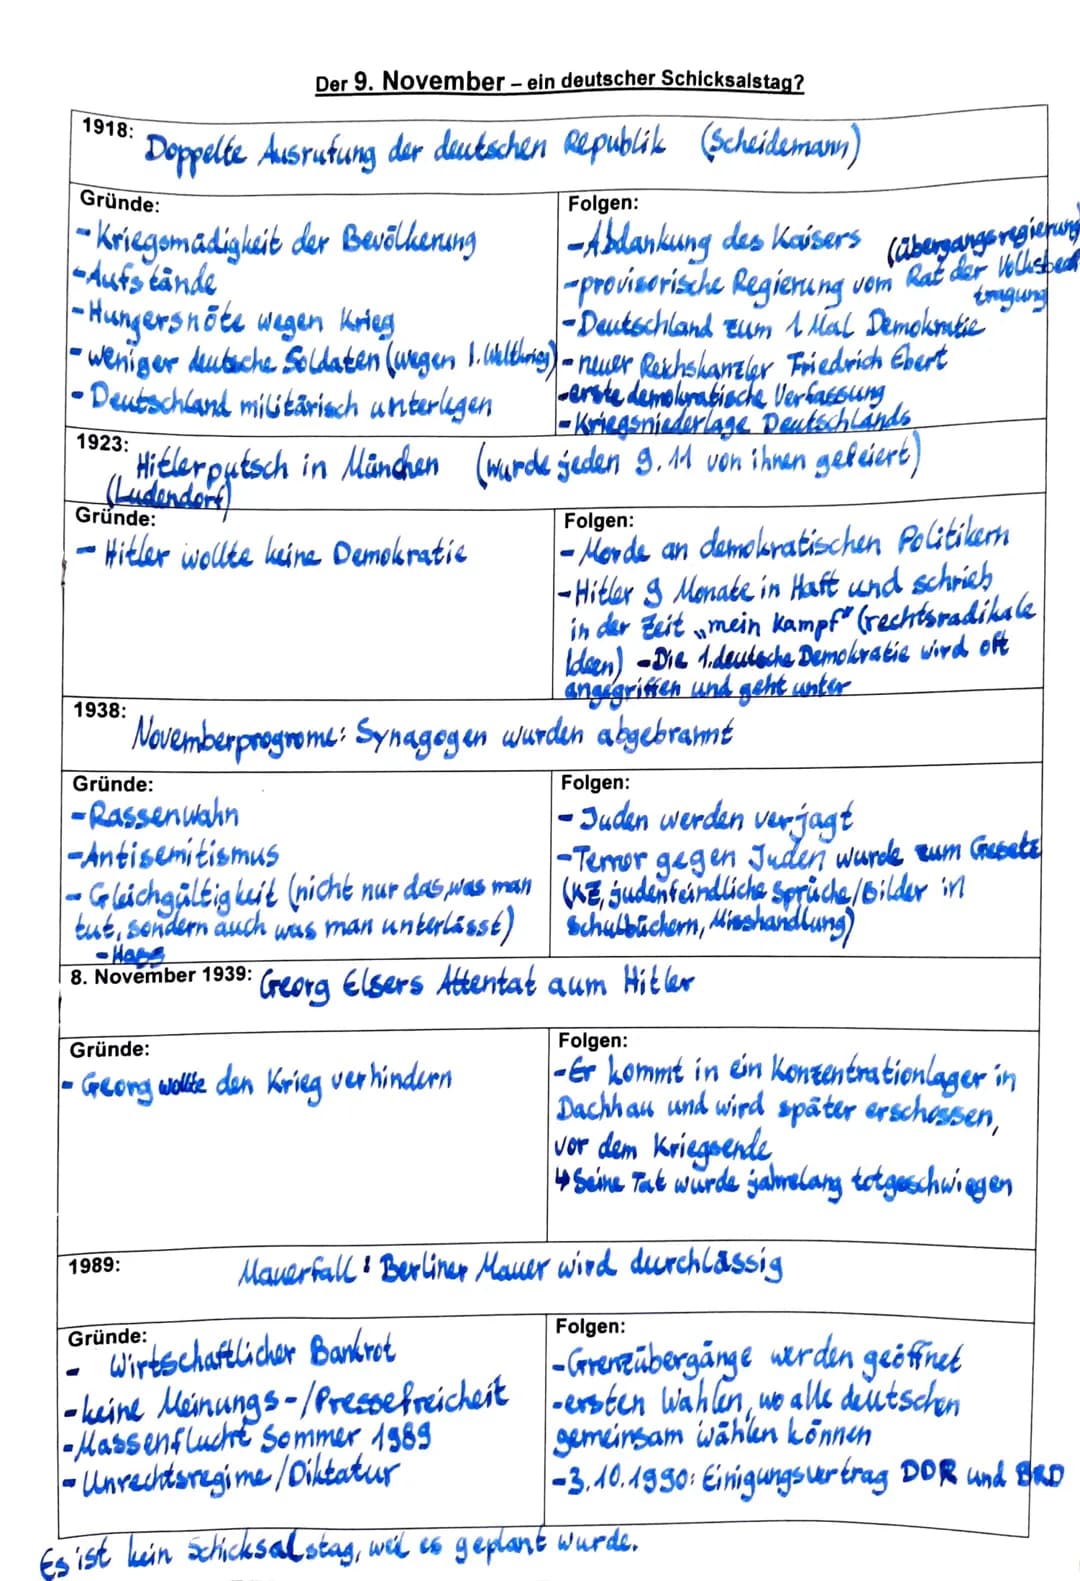 Der 9. November – ein deutscher Schicksalstag?
1918: Doppelte Ausrufung der deutschen Republik (Scheidemann)
Gründe:
- Kriegsmüdigkeit der Bevölkerung
- Aufstände
- Hungersnöte wegen Krieg
- weniger deutsche Soldaten (wegen 1. Weltkrieg)
- Deutschland militärisch unterlegen
Folgen:
- Abdankung des Kaisers (übergangsregierung)
- provisorische Regierung vom Rat der Volksbeauf
tragung
- Deutschland zum 1 Mal Demokratie
- neuer Reichskanzler Friedrich Ebert
- erste demokratische Verfassung
- Kriegsniederlage Deutschlands
1923: Hitlerputsch in München (wurde jeden 9.11 von ihnen gefeiert)
(Ludendorf)
Gründe:
- Hitler wollte keine Demokratie
Folgen:
- Morde an demokratischen Politikern
- Hitler 9 Monate in Haft und schrieb
in der Zeit „mein Kampf" (rechtsradikale
Ideen) - Die 1. deutsche Demokratie wird oft
angegriffen und geht unter
1938: Novemberprogrome: Synagogen wurden abgebrannt
Gründe:
- Rassenwahn
- Antisemitismus
- Gleichgültigkeit (nicht nur das, was man
tut, sondern auch was man unterlässt)
- Hass
Folgen:
- Juden werden verjagt
- Terror gegen Juden wurde zum Gesetz
(KZ, judenfeindliche Sprüche/Bilder in
Schulbüchern, Misshandlung)
8. November 1939: Georg Elsers Attentat aum Hitler
Gründe:
- Georg wollte den Krieg verhindern
Folgen:
- Er kommt in ein Konzentrationlager in
Dachhau und wird später erschossen,
vor dem Kriegsende
↳ Seine Tat wurde jahrelang totgeschwiegen
1989: Mauerfall: Berliner Mauer wird durchlässig
Gründe:
- Wirtschaftlicher Bankrot
- keine Meinungs-/Pressefreicheit
- Massenflucht Sommer 1989
- Unrechtsregime/Diktatur
Folgen:
- Grenzübergänge werden geöffnet
- ersten Wahlen, wo alle deutschen
gemeinsam wählen können
- 3.10.1990: Einigungsvertrag DDR und BRD
Es ist kein Schicksalstag, weil es geplant wurde.